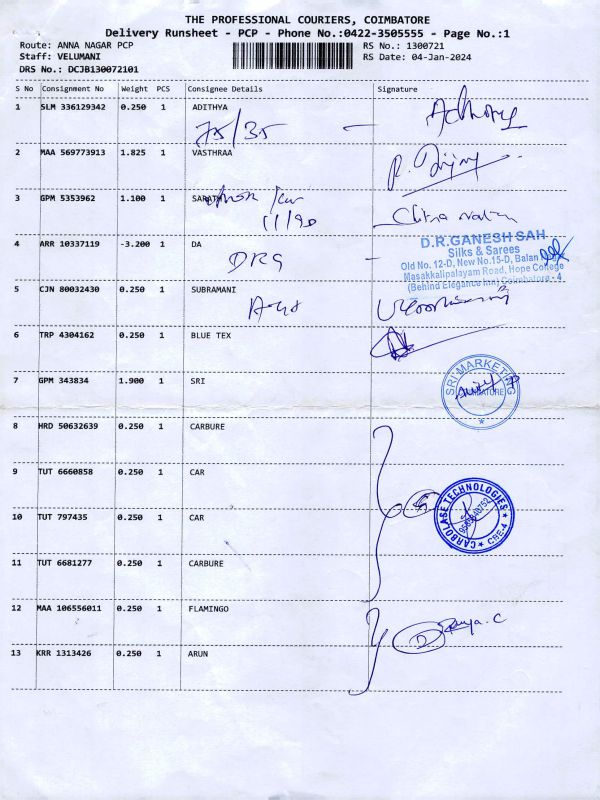 THE PROFESSIONAL COURIERS, COIMBATORE
Delivery Runsheet - PCP - Phone No.:0422-3505555 - Page No.:1
Route: ANNA NAGAR PCP RS No.: 1300721
Staff: VELUMANI RS Date: 04-Jan-2024
DRS No.: DCJB130072101
S No Consignment No Weight PCS Consignee Details Signature
1 SLM 336129342 0.250 1 ADITHYA
75/35 -
2 MAA 569773913 1.825 1 VASTHRAA
3 GPM 5353962 1.100 1
11/90
4 ARR 10337119 -3.200 1 DA
D.R.GANESH SAH
Silks & Sarees
Old No. 12-D, New No.15-D, Balan
Masakkalipalayam Road, Hope College
(Behind Elegance Inn) Coimbatore - 4
DRG -
5 CJN 80032430 0.250 1 SUBRAMANI
6 TRP 4304162 0.250 1 BLUE TEX
7 GPM 343834 1.900 1 SRI
SRI MARKETING
COIMBATORE
8 HRD 50632639 0.250 1 CARBURE
9 TUT 6660858 0.250 1 CAR
10 TUT 797435 0.250 1 CAR
CARBOLASE TECHNOLOGIES
CBE-4
11 TUT 6681277 0.250 1 CARBURE
12 MAA 106556011 0.250 1 FLAMINGO
13 KRR 1313426 0.250 1 ARUN